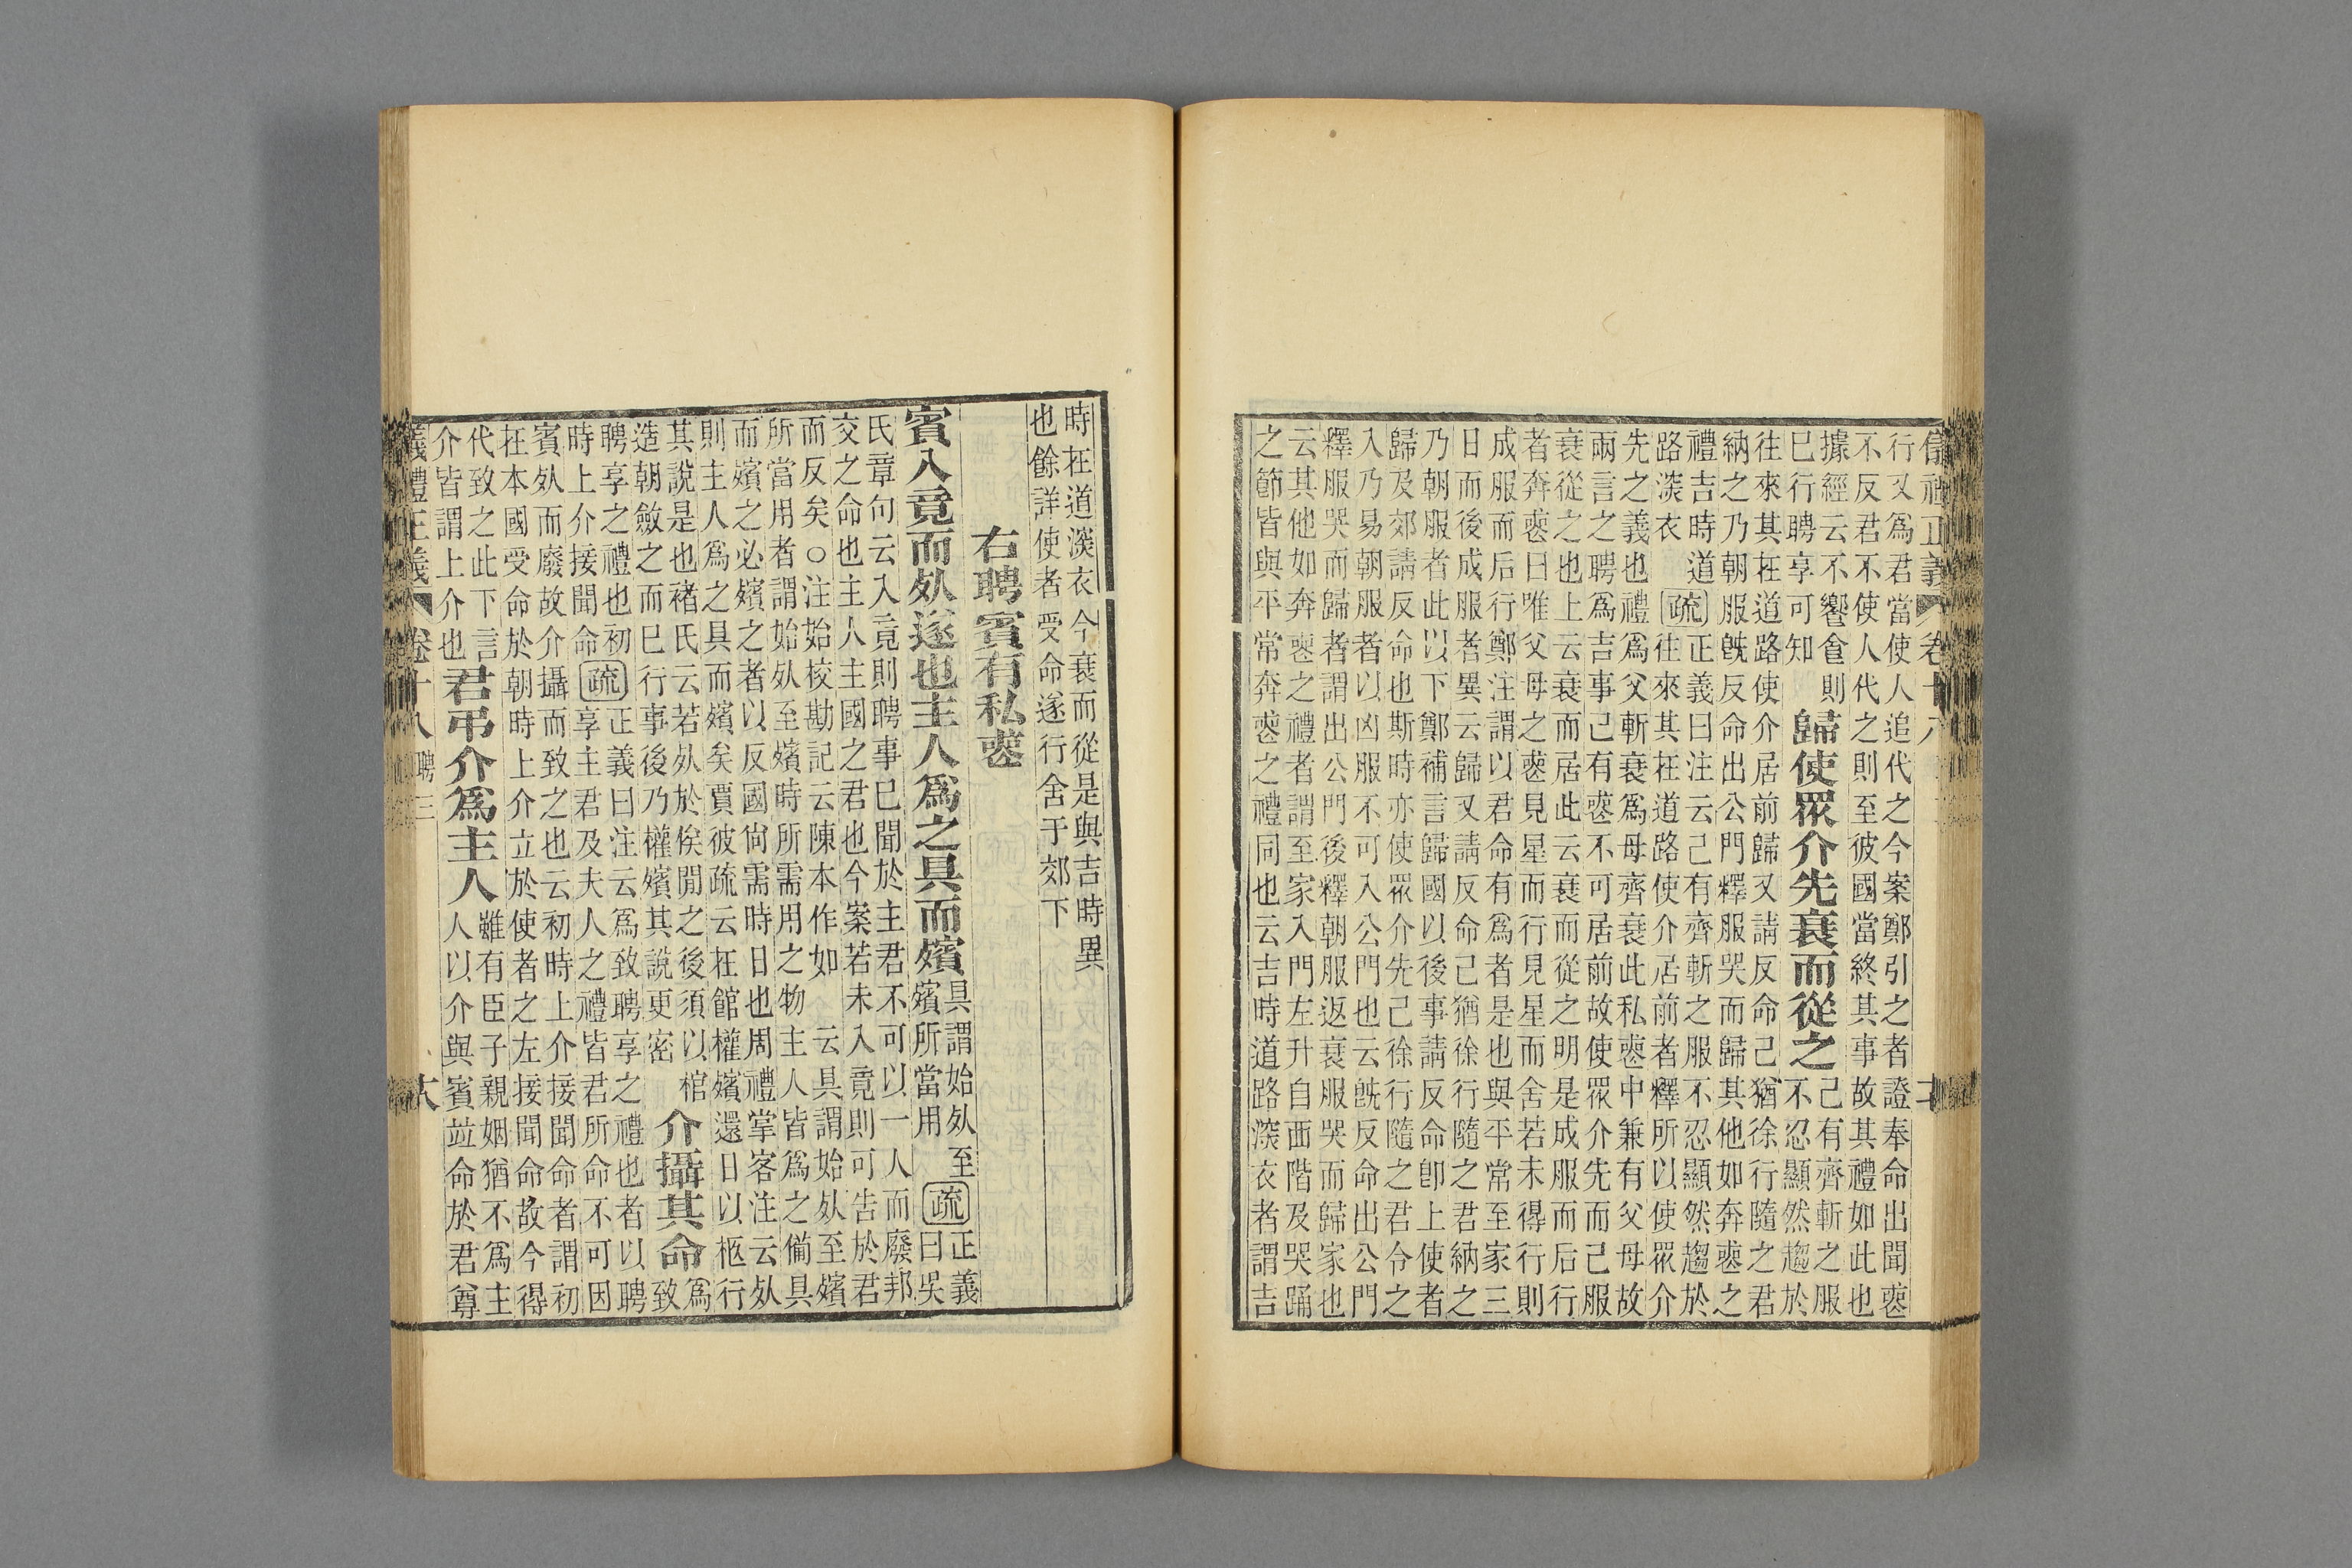 儀禮正義 卷十八
行又爲君當使人追代之今案鄭引之者證奉命出聞䘮
不反君不使人代之則至彼國當終其事故其禮如此也
據經云不饗食則
已行聘享可知
歸使眾介先衰而從之
己有齊斬之服
不忍顯然趨於
往來其在道路使介居前歸又請反命己猶徐行隨之君
納之乃朝服旣反命出公門釋服哭而歸其他如奔䘮之
禮吉時道
路深衣
疏
正義曰注云己有齊斬之服不忍顯然趨於
往來其在道路使介居前者釋所以使眾介
先之義也禮爲父斬衰爲母齊衰此私䘮中兼有父母故
兩言之聘爲吉事己有䘮不可居前故使眾介先而己服
衰從之也上云衰而居此云衰而從之明是成服而后行
者奔䘮曰唯父母之䘮見星而行見星而舍若未得行則
成服而后行鄭注謂以君命有爲者是也與平常至家三
日而後成服者異云歸又請反命己猶徐行隨之君納之
乃朝服者此以下鄭補言歸國以後事請反命卽上使者
歸及郊請反命也斯時亦使眾介先己徐行隨之君令之
入乃易朝服者以凶服不可入公門也云旣反命出公門
釋服哭而歸者謂出公門後釋朝服返衰服哭而歸家也
云其他如奔䘮之禮者謂至家入門左升自西階及哭踊
之節皆與平常奔䘮之禮同也云吉時道路深衣者謂吉
時在道深衣今衰而從是與吉時異
也餘詳使者受命遂行舍于郊下
右聘賓有私䘮
賓入竟而死遂也主人爲之具而殯
具謂始死至
殯所當用
疏
正義
曰吳
氏章句云入竟則聘事已聞於主君不可以一人而廢邦
交之命也主人主國之君也今案若未入竟則可告於君
而反矣○注始校勘記云陳本作如 云具謂始死至殯
所當用者謂始死至殯時所需用之物主人皆爲之備具
而殯之必殯之者以反國尙需時日也周禮掌客注云死
則主人爲之具而殯矣賈彼疏云在館權殯還日以柩行
其說是也褚氏云若死於俟閒之後須以棺
造朝斂之而已行事後乃權殯其說更密
介攝其命
爲
致
聘享之禮也初
時上介接聞命
疏
正義曰注云爲致聘享之禮也者以聘
享主君及夫人之禮皆君所命不可因
賓死而廢故介攝而致之也云初時上介接聞命者謂初
在本國受命於朝時上介立於使者之左接聞命故今得
代致之此下言
介皆謂上介也
君弔介爲主人
雖有臣子親姻猶不爲主
人以介與賓竝命於君尊
儀禮正義 卷十八 聘三